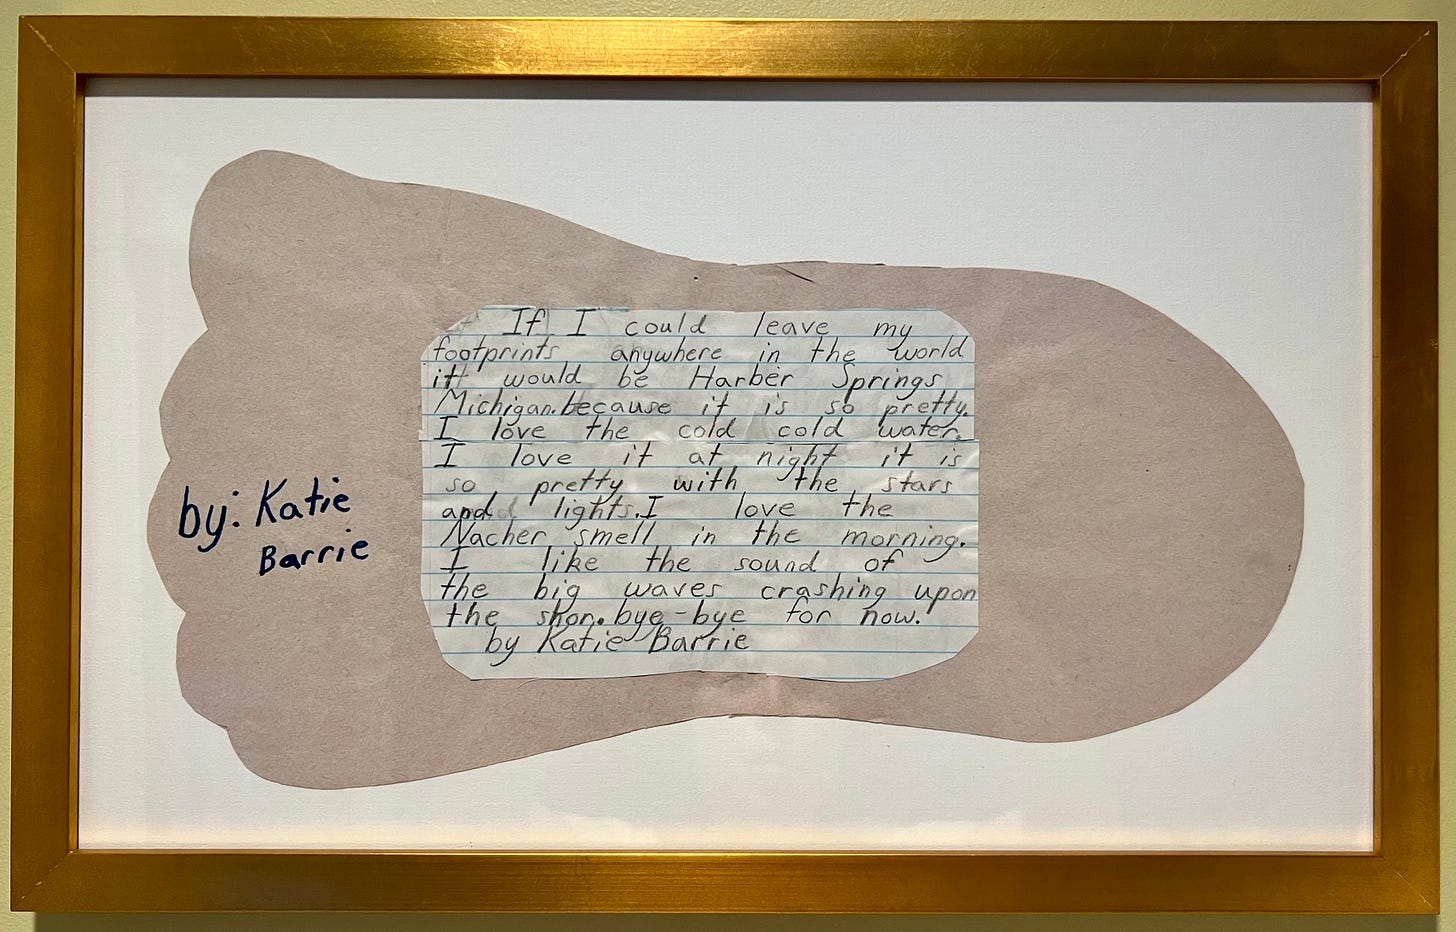 If I could leave my
footprints anywhere in the world
it would be Harber Springs
Michigan.because it is so pretty.
I love the cold cold water.
I love it at night it is
so pretty with the stars
and lights.I love the
Nacher smell in the morning.
I like the sound of
the big waves crashing upon
the shor.bye-bye for now.
by Katie Barrie
by: Katie
Barrie